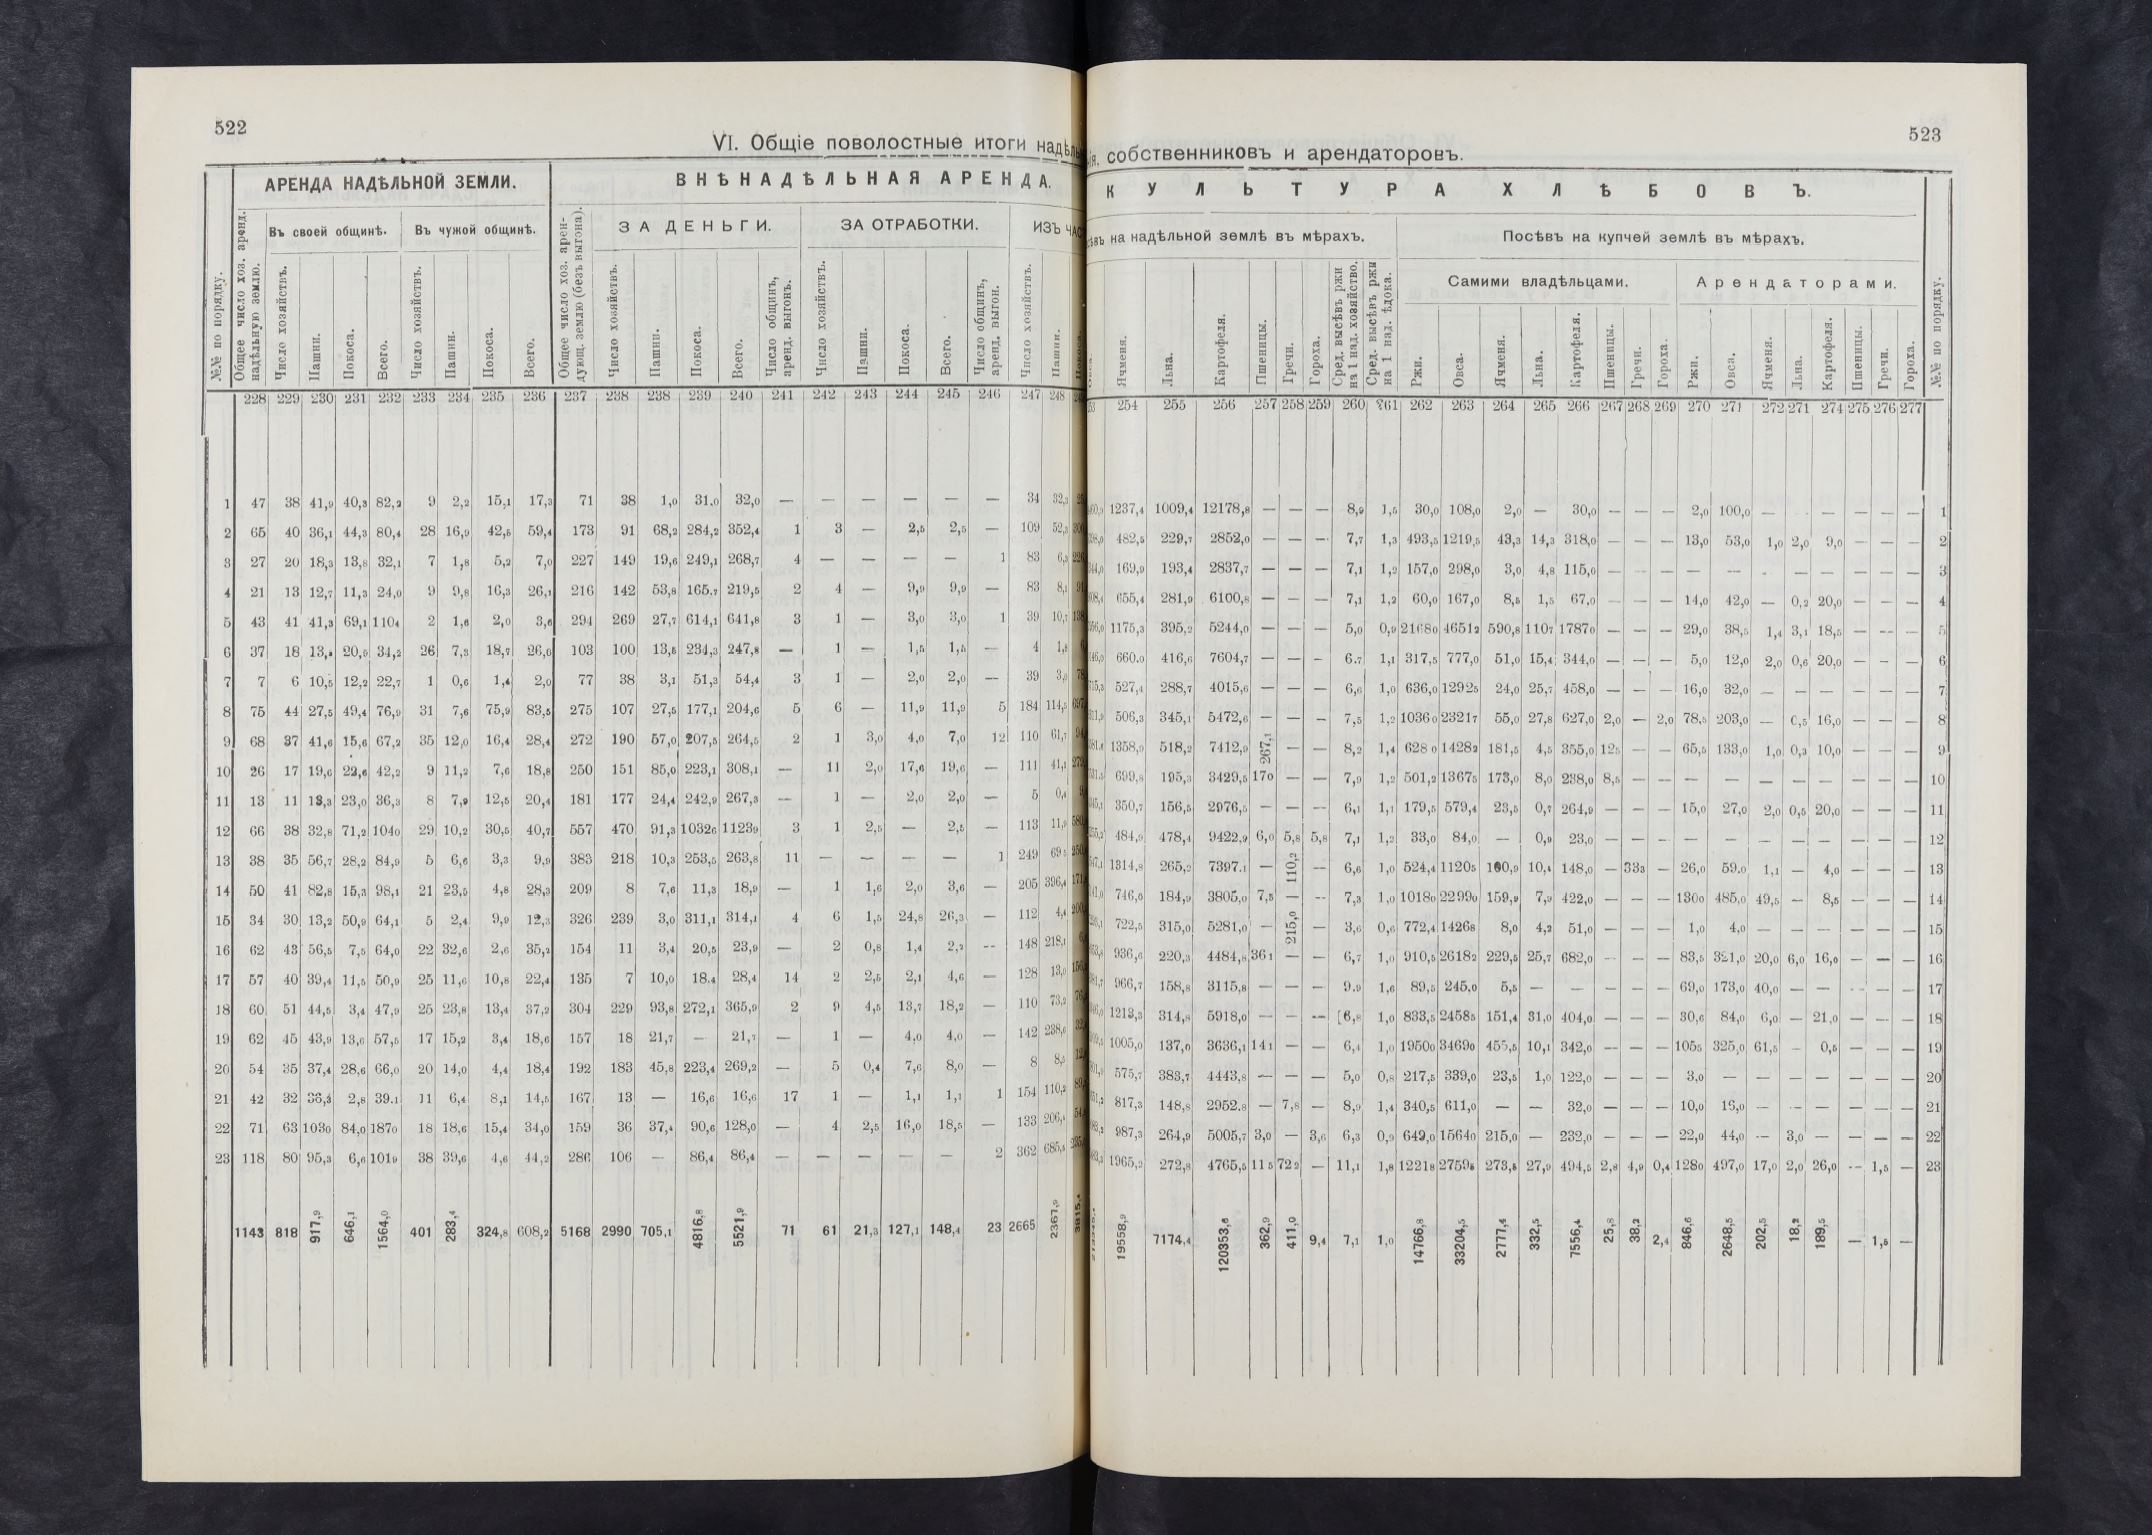 522
VI. Общіе поволостные итоги надѣль
АРЕНДА НАДѢЛЬНОЙ ЗЕМЛИ.
ВНѢНАДѢЛЬНАЯ АРЕНДА.
№№ по порядку.
Общее число хоз. аренд. надѣльную землю.
Въ своей общинѣ.
Въ чужой общинѣ.
Общее число хоз. арен-
дующ. землю (безъ выгона).
ЗА ДЕНЬГИ.
ЗА ОТРАБОТКИ.
ИЗЪ ЧАС
Число хозяйствъ. Пашни. Покоса. Всего. Число хозяйствъ. Пашни. Покоса. Всего. Число хозяйствъ. Пашни. Покоса. Всего. Число общинъ, аренд. выгонъ. Число хозяйствъ. Пашни. Покоса. Всего. Число общинъ, аренд. выгон. Число хозяйствъ. Пашни.
228 229 230 231 232 233 234 235 236 237 238 238 239 240 241 242 243 244 245 246 247 248
1 47 38 41,9 40,3 82,2 9 2,2 15,1 17,3 71 38 1,0 31,0 32,0 — — — — — — 34 32,3
2 65 40 36,1 44,3 80,4 28 16,9 42,5 59,4 173 91 68,2 284,2 352,4 1 3 — 2,5 2,5 — 109 52,3
3 27 20 18,3 13,8 32,1 7 1,8 5,2 7,0 227 149 19,6 249,1 268,7 4 — — — — 1 83 6,3
4 21 13 12,7 11,3 24,0 9 9,8 16,3 26,1 216 142 53,8 165,7 219,5 2 4 — 9,9 9,9 — 83 8,1
5 43 41 41,3 69,1 1104 2 1,6 2,0 3,6 294 269 27,7 614,1 641,8 3 1 — 3,0 3,0 1 39 10,7
6 37 18 20,5 34,2 26 7,3 18,7 26,0 103 100 13,5 234,3 247,8 — 1 — 1,5 1,5 — 4 1,8
7 7 6 10,5 12,2 22,7 1 0,6 1,4 2,0 77 38 3,1 51,3 54,4 3 1 — 2,0 2,0 — 39 3,0
8 75 44 27,5 49,4 76,9 31 7,6 75,9 83,5 275 107 27,5 177,1 204,6 5 6 — 11,9 11,9 5 184 114,5
9 68 37 41,6 15,6 67,2 35 12,0 16,4 28,4 272 190 57,0 207,5 264,5 2 1 3,0 4,0 7,0 12 110 61,7
10 26 17 19,6 22,6 42,2 9 11,2 7,6 18,8 250 151 85,0 223,1 308,1 — 11 2,0 17,6 19,6 — 111 41,1
11 13 11 13,3 23,0 36,3 8 7,9 12,5 20,4 181 177 24,4 242,9 267,3 — 1 — 2,0 2,0 — 5 0,4
12 66 38 32,8 71,2 1040 29 10,2 30,5 40,7 557 470 91,3 10326 11239 3 1 2,5 — 2,5 — 113 11,9
13 38 35 56,7 28,2 84,9 5 6,6 3,3 9,9 383 218 10,3 253,5 263,8 11 — — — — 1 249
14 50 41 82,8 15,3 98,1 21 23,5 4,8 28,3 209 8 7,6 11,3 18,9 — 1 1,6 2,0 3,6 — 205 396,4
15 34 30 13,2 50,9 64,1 5 2,4 9,9 12,3 326 239 3,0 311,1 314,1 4 6 1,5 24,8 26,3 — 112 4,4
16 62 43 56,5 7,5 64,0 22 32,6 2,6 35,2 154 11 3,4 20,5 23,9 — 2 0,8 1,4 2,2 — 148 218,1
17 57 40 39,4 11,5 50,9 25 11,6 10,8 22,4 135 7 10,0 18,4 28,4 14 2 2,5 2,1 4,6 — 128 13,0
18 60 51 44,5 3,4 47,9 25 23,8 13,4 37,2 304 229 93,8 272,1 365,9 2 9 4,5 13,7 18,2 — 110 73,2
19 62 45 43,9 13,6 57,5 17 15,2 3,4 18,6 157 18 21,7 — 21,7 — 1 — 4,0 4,0 — 142 238,6
20 54 35 37,4 28,6 66,0 20 14,0 4,4 18,4 192 183 45,8 223,4 269,2 — 5 0,4 7,6 8,0 — 8 8,5
21 42 32 36,3 2,8 39,1 11 6,4 8,1 14,5 167 13 — 16,6 16,6 17 1 — 1,1 1,1 1 154 110,2
22 71 63 1030 84,0 1870 18 18,6 15,4 34,0 159 36 37,4 90,6 128,0 — 4 2,5 16,0 18,5 — 133 206,4
23 118 80 95,3 6,6 1019 38 39,6 4,6 44,2 286 106 — 86,4 86,4 — — — — — 2 362 685,4
1143 818 917,9 646,1 1564,0 401 283,4 324,8 608,2 5168 2990 705,1 4816,8 5521,9 71 61 21,3 127,1 148,4 23 2665 2367,9
523
ія. собственниковъ и арендаторовъ.
КУЛЬТУРА ХЛѢБОВЪ.
на надѣльной землѣ въ мѣрахъ.
Посѣвъ на купчей землѣ въ мѣрахъ.
Самими владѣльцами.
Арендаторами.
Ячменя. Льна. Картофеля. Пшеницы. Гречи. Гороха. Сред. высѣвъ ржи на 1 над. хозяйство. Сред. высѣвъ ржи на 1 над. ѣдока. Ржи. Овса. Ячменя. Льна. Картофеля. Пшеницы. Гречи. Гороха. Ржи. Овса. Ячменя. Льна. Картофеля. Пшеницы. Гречи. Гороха. №№ по порядку.
254 255 256 257 258 259 260 261 262 263 264 265 266 267 268 269 270 271 272 271 274 275 276 277
1237,4 1009,4 12178,8 — — — 8,9 1,5 30,0 108,0 2,0 — 30,0 — — — 2,0 100,0 — — — — — — 1
482,5 229,7 2852,0 — — — 7,7 1,3 493,5 1219,5 43,3 14,3 318,0 — — — 13,0 53,0 1,0 2,0 9,0 — — — 2
169,9 193,4 2837,7 — — — 7,1 1,2 157,0 298,0 3,0 4,8 115,0 — — — — — — — — — — — 3
655,4 281,9 6100,8 — — — 7,1 1,2 60,0 167,0 8,5 1,5 67,0 — — — 14,0 42,0 — 0,2 20,0 — — — 4
1175,3 395,2 5244,0 — — — 5,0 0,9 21680 46512 590,8 1107 17870 — — — 29,0 38,5 1,4 3,1 18,5 — — — 5
660,0 416,6 7604,7 — — — 6,7 1,1 317,5 777,0 51,0 15,4 344,0 — — — 5,0 12,0 2,0 0,6 20,0 — — — 6
527,4 288,7 4015,6 — — — 6,6 1,0 636,0 12925 24,0 25,7 458,0 — — — 16,0 32,0 — — — — — — 7
506,3 345,1 5472,6 — — — 7,5 1,2 10360 23217 55,0 27,8 627,0 2,0 — 2,0 78,5 203,0 — 0,5 16,0 — — — 8
1358,9 518,2 7412,9 267,1 — — 8,2 1,4 6280 14282 181,5 4,5 355,0 125 — — 65,5 133,0 1,0 0,3 10,0 — — — 9
699,8 195,3 3429,5 170 — — 7,9 1,2 501,2 13675 173,0 8,0 238,0 8,5 — — — — — — — — — — 10
350,7 156,5 2976,5 — — — 6,1 1,1 179,5 579,4 23,5 0,7 264,9 — — — 15,0 27,0 2,0 0,5 20,0 — — — 11
484,9 478,4 9422,9 6,0 5,8 5,8 7,1 1,2 33,0 84,0 — 0,9 23,0 — — — — — — — — — — — 12
1314,8 265,2 7397,1 — 110,2 — 6,6 1,0 524,4 11205 160,9 10,4 148,0 — 333 — 26,0 59,0 1,1 — 4,0 — — — 13
746,0 184,9 3805,0 7,5 — — 7,3 1,0 10180 22990 159,9 7,9 422,0 — — — 1300 485,0 49,5 — 8,5 — — — 14
722,5 315,0 5281,0 — 215,0 — 3,6 0,6 772,4 14268 8,0 4,2 51,0 — — — 1,0 4,0 — — — — — — 15
936,6 220,3 4484,8 361 — — 6,7 1,0 910,5 26182 229,5 25,7 682,0 — — — 83,5 321,0 20,0 6,0 16,0 — — — 16
966,7 158,8 3115,8 — — — 9,9 1,6 89,5 245,0 5,5 — — — — — 69,0 173,0 40,0 — — — — — 17
1213,3 314,8 5918,0 — — — [6,8 1,0 833,5 24585 151,4 31,0 404,0 — — — 30,6 84,0 6,0 — 21,0 — — — 18
1005,0 137,0 3636,1 141 — — 6,4 1,0 19500 34690 455,5 10,1 342,0 — — — 1055 325,0 61,5 — 0,5 — — — 19
575,7 383,7 4443,8 — — — 5,0 0,8 217,5 339,0 23,5 1,0 122,0 — — — 3,0 — — — — — — — 20
817,3 148,8 2952,8 — 7,8 — 8,9 1,4 340,5 611,0 — — 32,0 — — — 10,0 — — — — — — 21
987,3 264,9 5005,7 3,0 — 3,6 6,3 0,9 649,0 15640 215,0 — 232,0 — — — 22,0 44,0 — 3,0 — — — — 22
1965,2 272,8 4765,5 115 722 — 11,1 1,8 12218 27595 273,5 27,9 494,5 2,8 4,9 0,4 1280 497,0 17,0 2,0 26,0 — 1,5 — 23
19558,9 7174,4 120353,6 362,9 411,0 9,4 7,1 1,0 14766,8 33204,5 2777,4 332,5 7556,4 25,8 38,2 2,4 846,6 2648,5 202,5 18,2 189,5 — 1,5 —